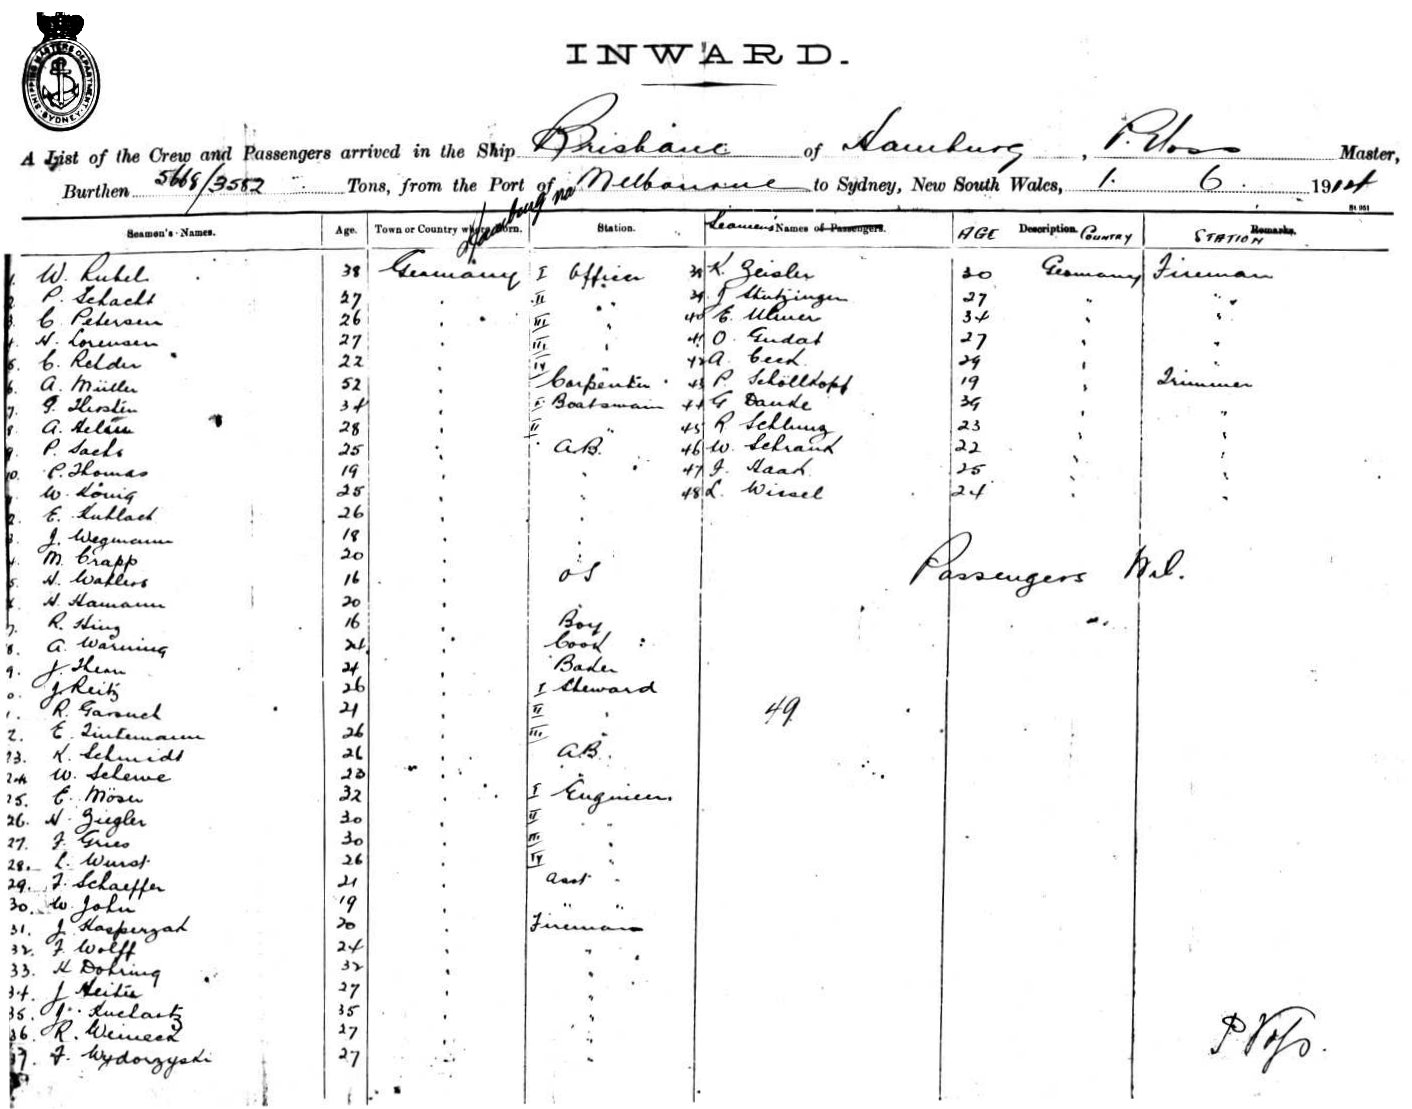 SHIPPING MASTERS DEPARTMENT. SYDNEY.
INWARD.
A List of the Crew and Passengers arrived in the Ship Brisbane of Hamburg, P. Voss Master,
Burthen 5668/3582 Tons, from the Port of Hambourg via Melbourne to Sydney, New South Wales, 1. 6. 1914
St 951
Seamen's Names. Age. Town or Country where Born. Station. Seamens Names of Passengers. AGE Description. COUNTRY Remarks. STATION
1. W. 38 Germany I Officer 38 K. Zeisler 30 Germany Fireman
2. P. Schacht 27 " II " 39 Stutzinger 27 " "
3. C. Petersen 26 " III " 40 E. Ulmer 34 " "
4. H. Lorensen 27 " III " 41 O. Gudat 27 " "
5. C. Rehder 22 " IV " 42 A. 29 " "
6. A. Müller 52 " Carpenter 43 P. Schöllkopf 19 " Trimmer
7. Thorsten 34 " I Boatswain 44 G Danke 39 " "
8. A. 28 " II " 45 R Schlung 23 " "
9. P. Sachs 25 " A.B. 46 W. Schrank 22 " "
10. P. Thomas 19 " " 47 J. Haak 25 " "
1. W. König 25 " " 48 L. Wissel 24 " "
2. E. Kuhlack 26 " "
3. J. Wegmann 18 " "
4. M. Crapp 20 " "
5. H. Wahlers 16 " OS Passengers Nil.
6. H. Hamann 20 "
7. R. Hinz 16 " Boy
8. A. Warning 24 " Cook
9. J. Thern 24 " Baker
0. J Reitz 26 " I Steward
1. R. 21 " II " 49
2. E. Lintemann 26 " III "
23. K. Schmidt 26 " A.B.
24 W. Schewe 23 " "
25. E. Möser 32 " I Engineer.
26. H. Ziegler 30 " II "
27. F. Gries 30 " III "
28. L. Wurst 26 " IV "
29. F. Schaeffer 21 " Asst "
30. W. John 19 " " "
31. J. Kasperzak 20 " Fireman
32. F. Wolff 24 " "
33. H Dohring 32 " "
34. J 27 " "
35. 35 " "
36. R. 27 " "
37. F. Wydorzyski 27 " "
P Voss.